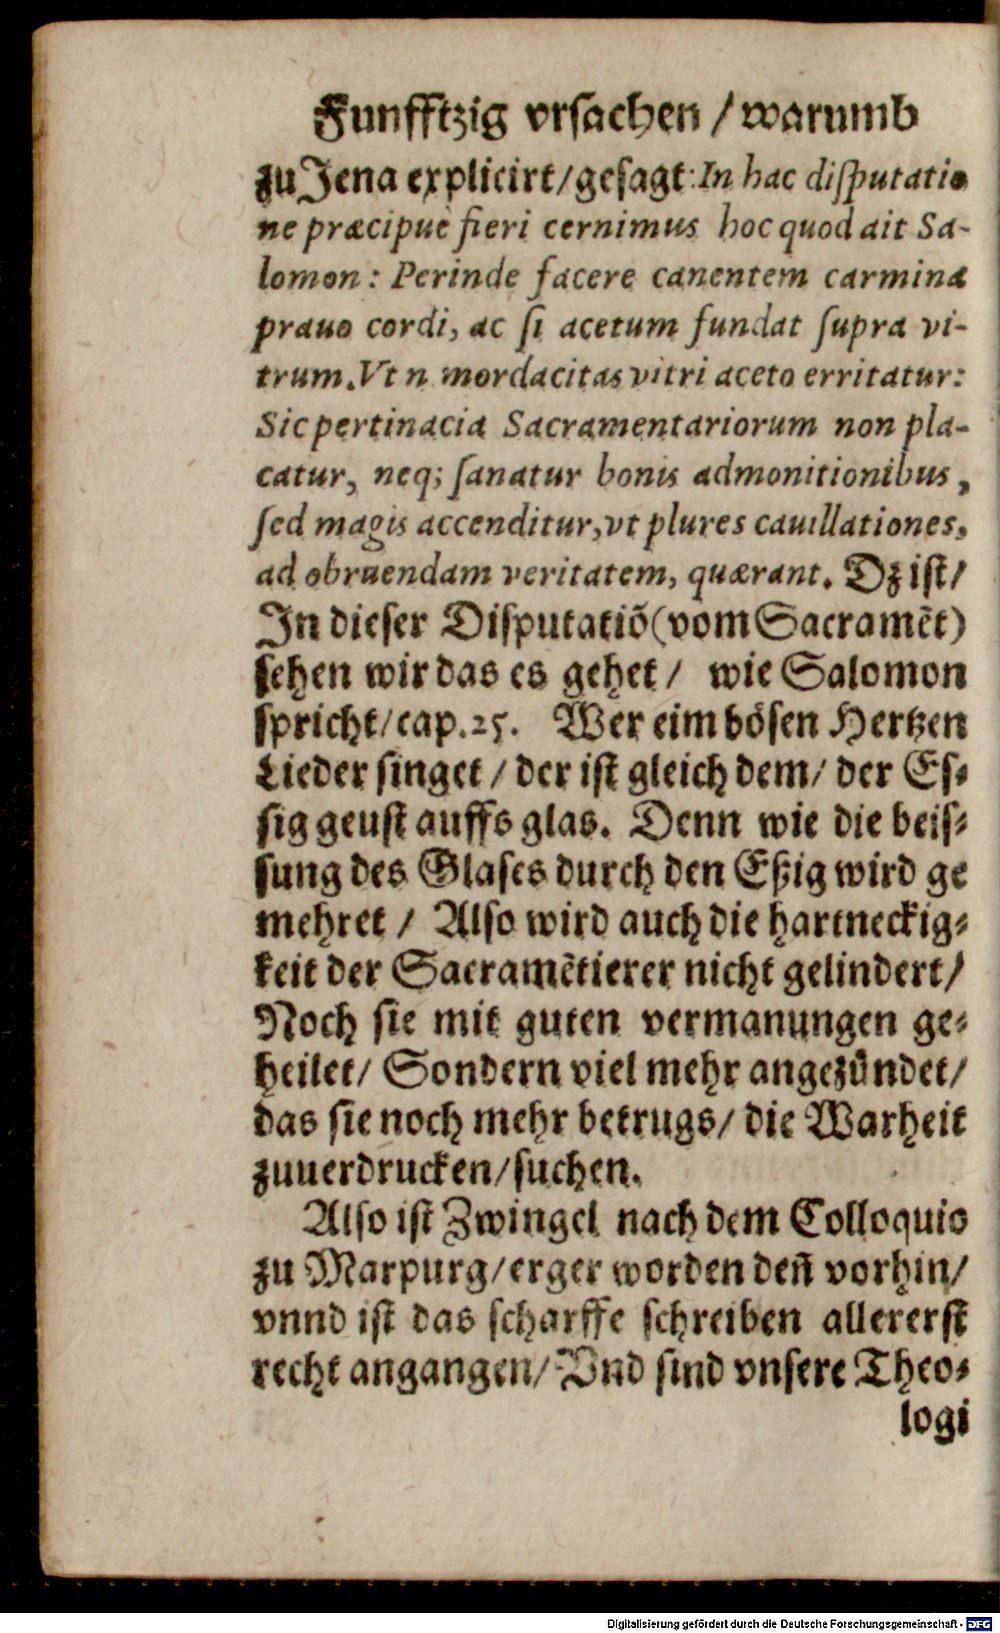 Funfftzig vrsachen / warumb
zu Jena explicirt/gesagt: In hac disputatio
ne præcipuè fieri cernimus hoc quod ait Sa-
lomon: Perinde facere canentem carmina
prauo cordi, ac si acetum fundat supra vi-
trum. Vt n mordacitas vitri aceto erritatur:
Sic pertinacia Sacramentariorum non pla-
catur, neq; sanatur bonis admonitionibus,
sed magis accenditur, vt plures cauillationes,
ad obruendam veritatem, quærant. Dz ist/
In dieser Disputatiō (vom Sacramēt)
sehen wir das es gehet / wie Salomon
spricht/cap.25. Wer eim bösen Hertzen
Lieder singet / der ist gleich dem/ der Es-
sig geust auffs glas. Denn wie die beis-
sung des Glases durch den Eßig wird ge
mehret / Also wird auch die hartneckig-
keit der Sacramētierer nicht gelindert/
Noch sie mit guten vermanungen ge-
heilet/ Sondern viel mehr angezündet/
das sie noch mehr betrugs/ die Warheit
zuuerdrucken/suchen.
Also ist Zwingel nach dem Colloquio
zu Marpurg/erger worden deñ vorhin/
vnnd ist das scharffe schreiben allererst
recht angangen/ Vnd sind vnsere Theo-
logi
Digitalisierung gefördert durch die Deutsche Forschungsgemeinschaft - DFG